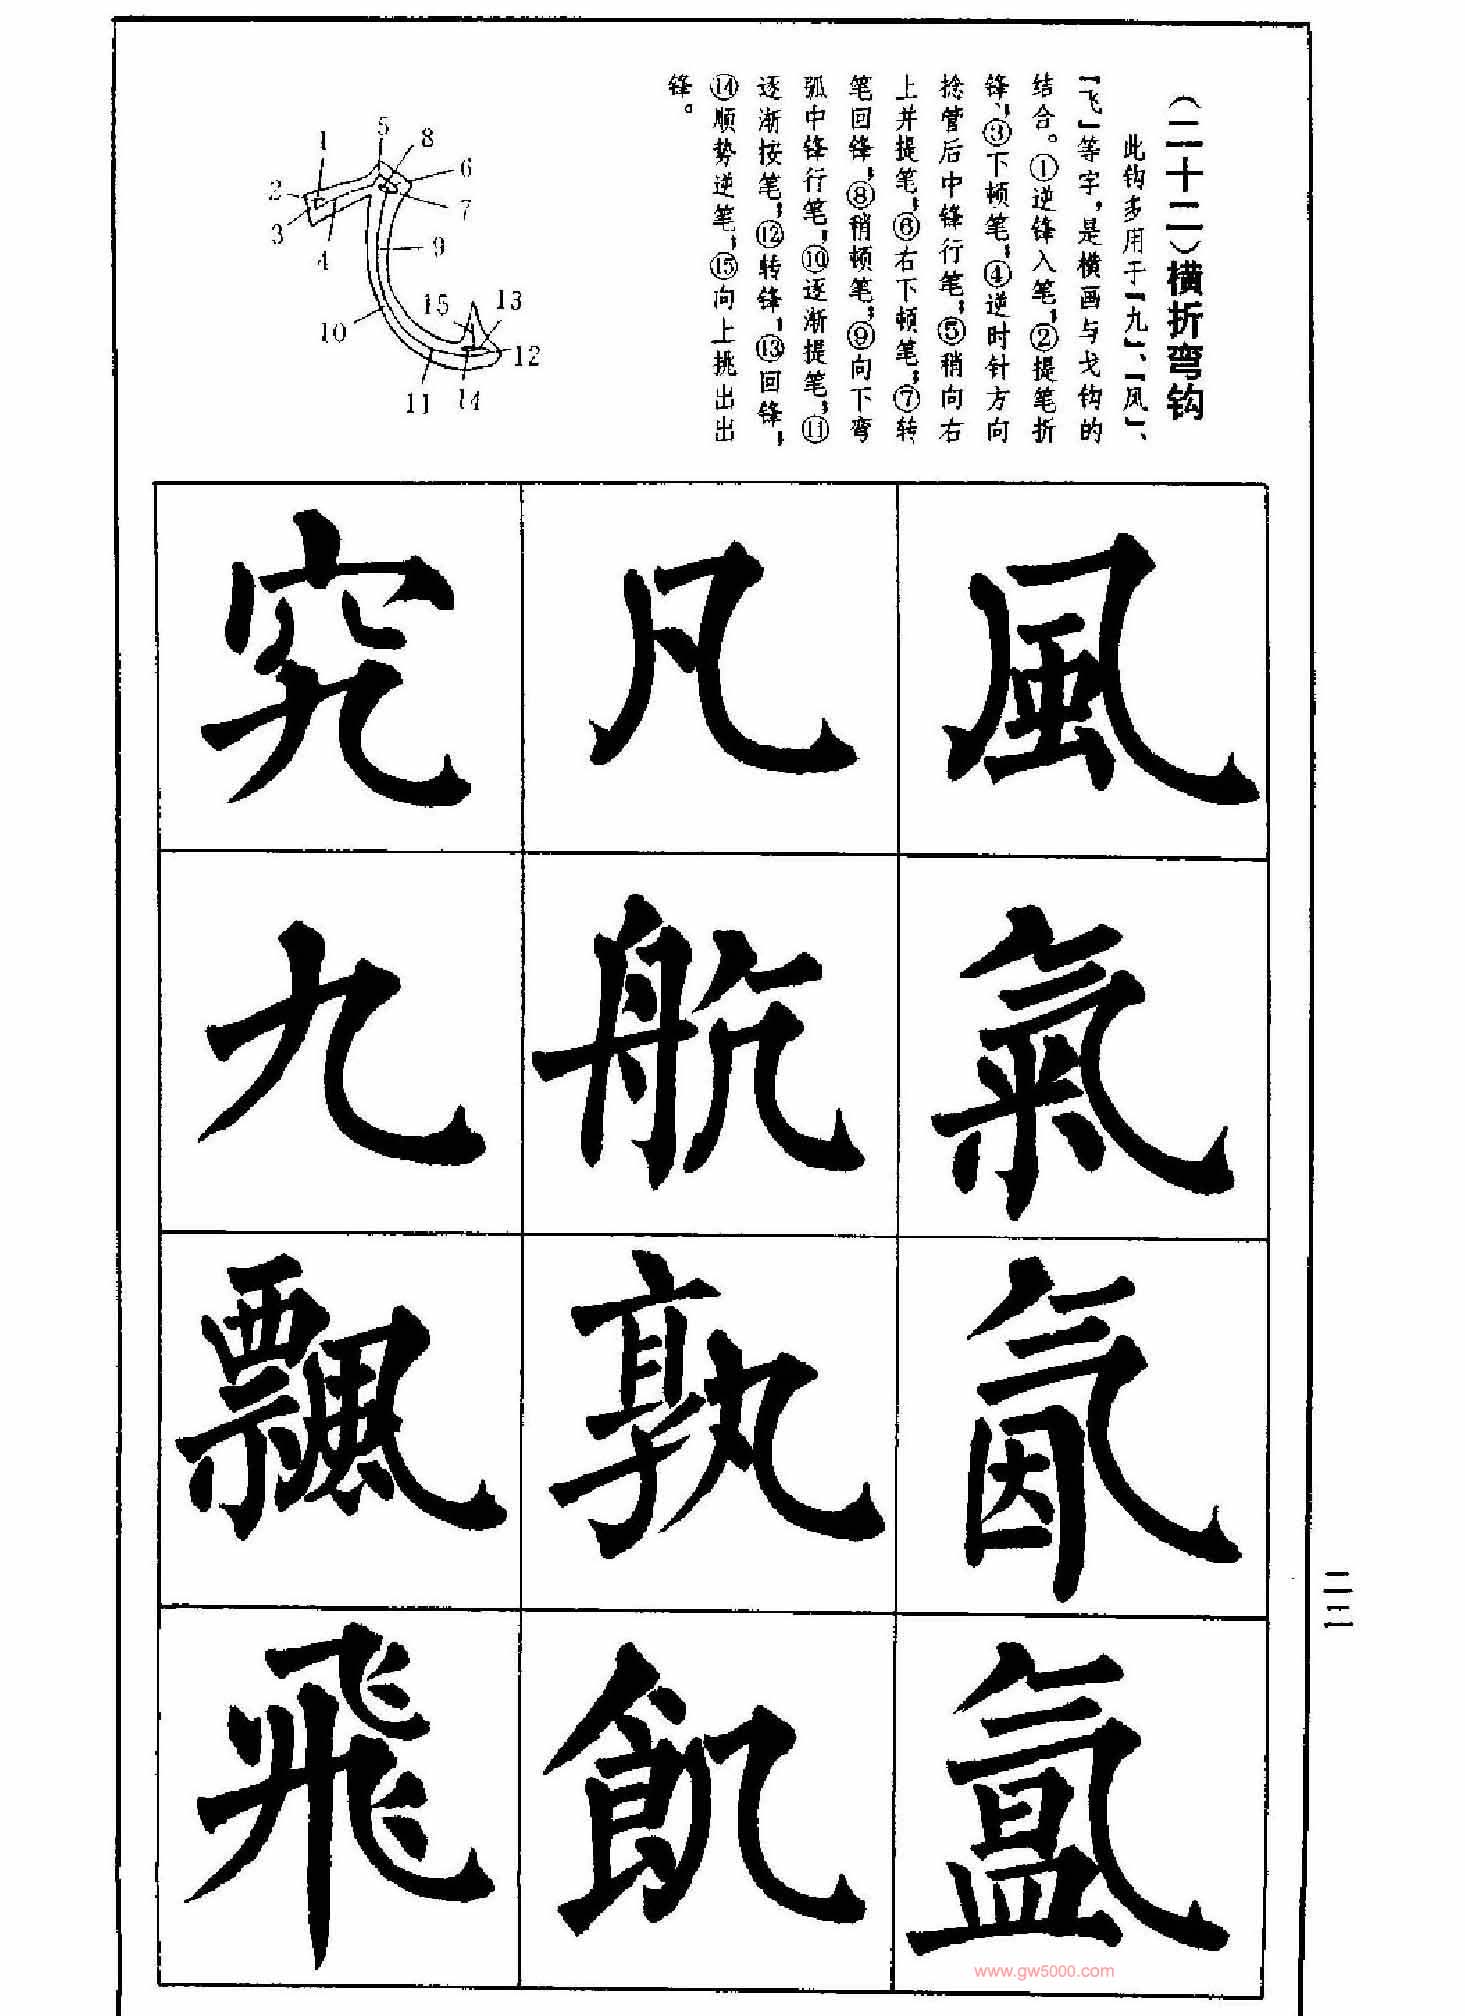 （二十二）横折弯钩
此钩多用于「九」、「风」、
「飞」等字，是横画与戈钩的
结合。①逆锋入笔；②提笔折
锋；③下顿笔；④逆时针方向
捻管后中锋行笔；⑤稍向右
上并提笔；⑥右下顿笔；⑦转
笔回锋；⑧稍顿笔；⑨向下弯
弧中锋行笔；⑩逐渐提笔；⑪
逐渐按笔；⑫转锋；⑬回锋；
⑭顺势逆笔；⑮向上挑出出
锋。
1
2
3
4
5
8
6
7
9
10
15
13
12
11
14
風
氣
氤
氲
凡
航
孰
飢
究
九
飄
飛
二三
www.gw5000.com